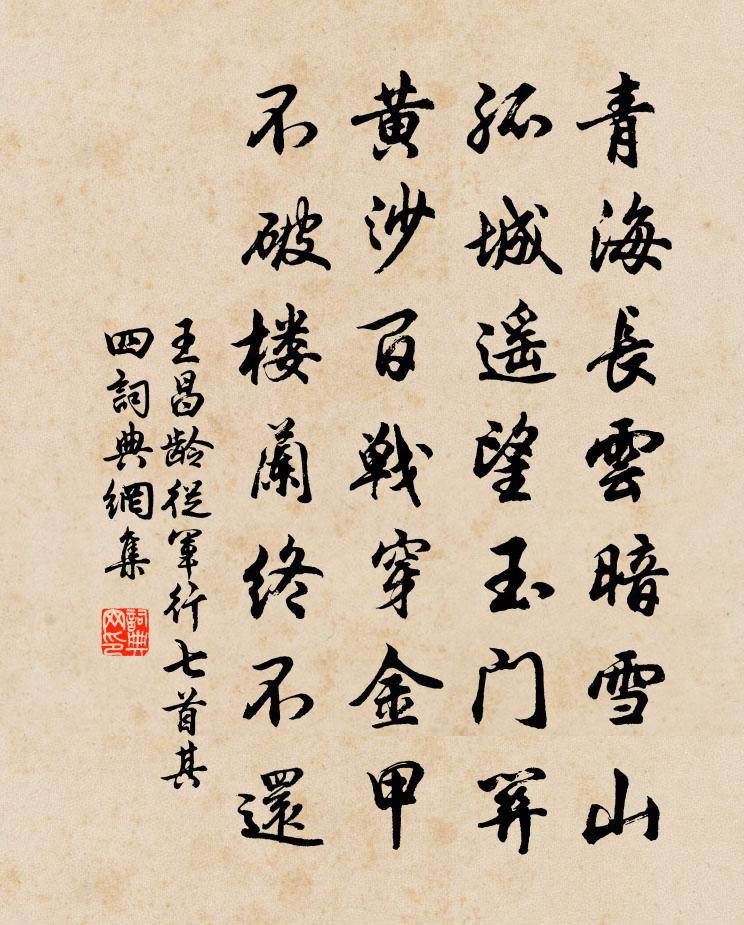 青海長雲暗雪山
孤城遥望玉門關
黄沙百戦穿金甲
不破楼蘭終不還
王昌龄從軍行七首其
四詞典網集
詞典
网印